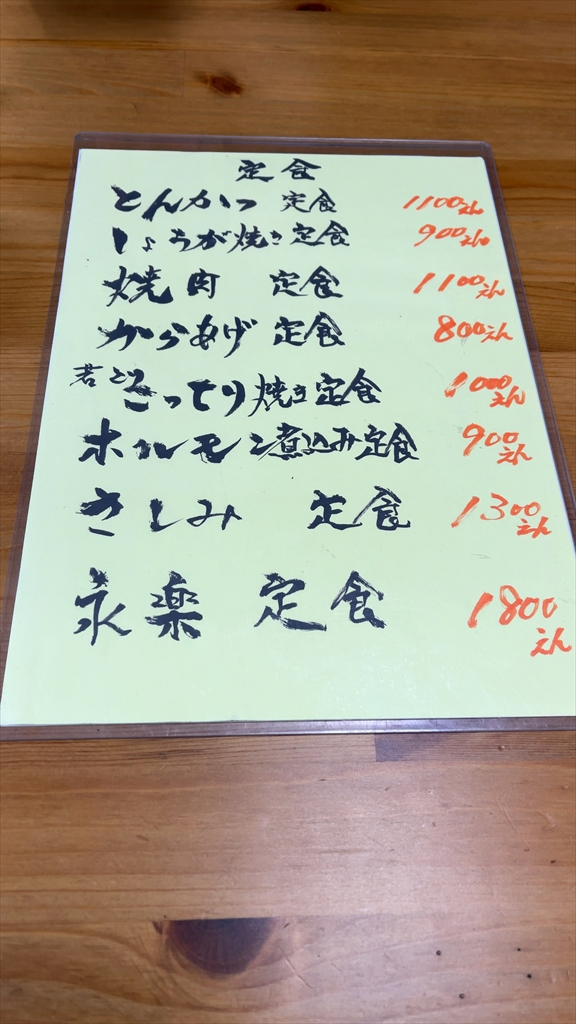 定食
とんかつ 定食 1100えん
しょうが焼き定食 900えん
焼肉 定食 1100えん
からあげ 定食 800えん
若どりこってり焼き定食 1000えん
ホルモン煮込み定食 900えん
さしみ 定食 1300えん
永楽 定食 1800えん